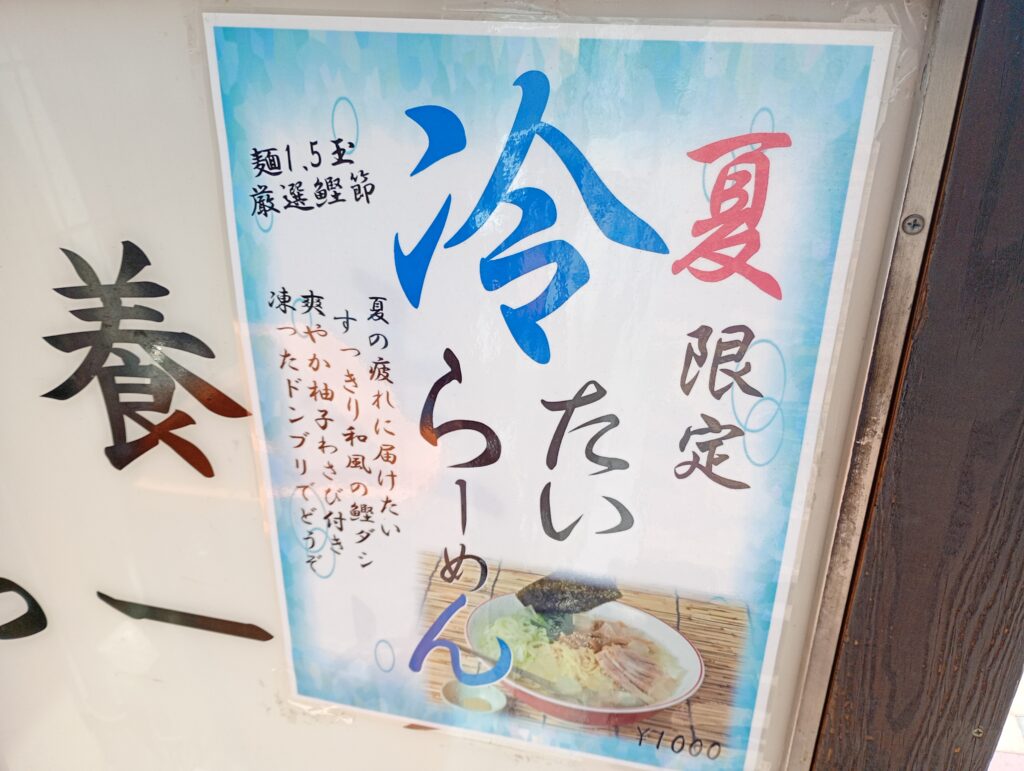 夏限定
冷たい
らーめん
麺1.5玉
厳選鰹節
夏の疲れに届けたい
すっきり和風の鰹ダシ
爽やか柚子わさび付き
凍ったドンブリでどうぞ
¥1000
養